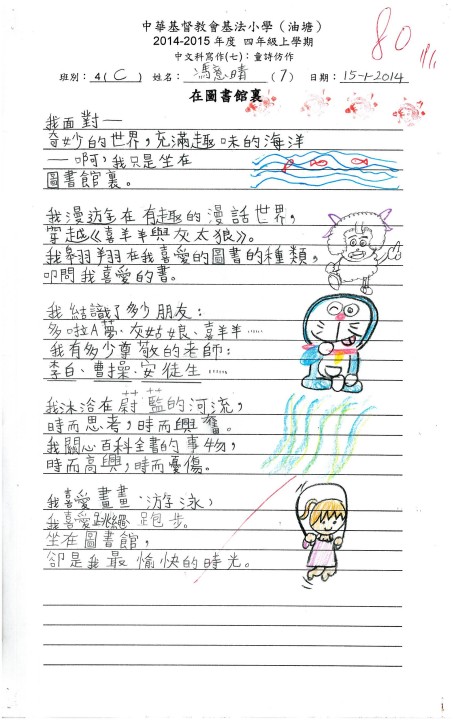 中華基督教會基法小學（油塘）
2014-2015 年度 四年級上學期
中文科寫作(七)：童詩仿作
80
班別： 4(C) 姓名： 馮意晴 (7) 日期： 15-1-2014
在圖書館裏
我面對—
奇妙的世界，充滿趣味的海洋
— 啊，我只是坐在
圖書館裏。
我漫遊在有趣的漫話世界，
穿越《喜羊羊與灰太狼》。
我翱翔在我喜愛的圖書的種類，
叩問我喜愛的書。
我結識了多少朋友：
多啦A夢、灰姑娘、喜羊羊……
我有多少尊敬的老師：
李白、曹操、安徒生……
我沐浴在蔚藍的河流，
時而思考，時而興奮。
我關心百科全書的事物，
時而高興，時而憂傷。
我喜愛畫畫、游泳，
我喜愛跳繩、跑步。
坐在圖書館，
卻是我最愉快的時光。